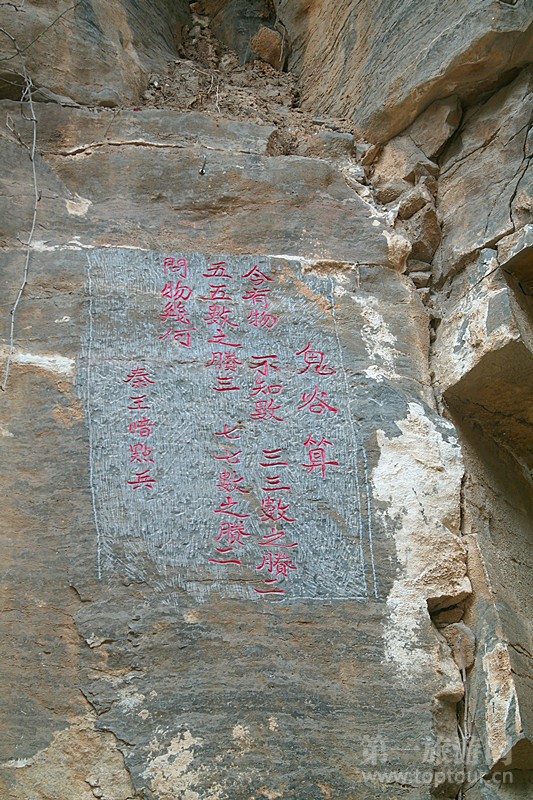 鬼谷算
今有物 不知数 三三數之賸二
五五數之賸三 七七數之賸二
問物幾何
秦王暗點兵
第一旅游网
www.toptour.cn